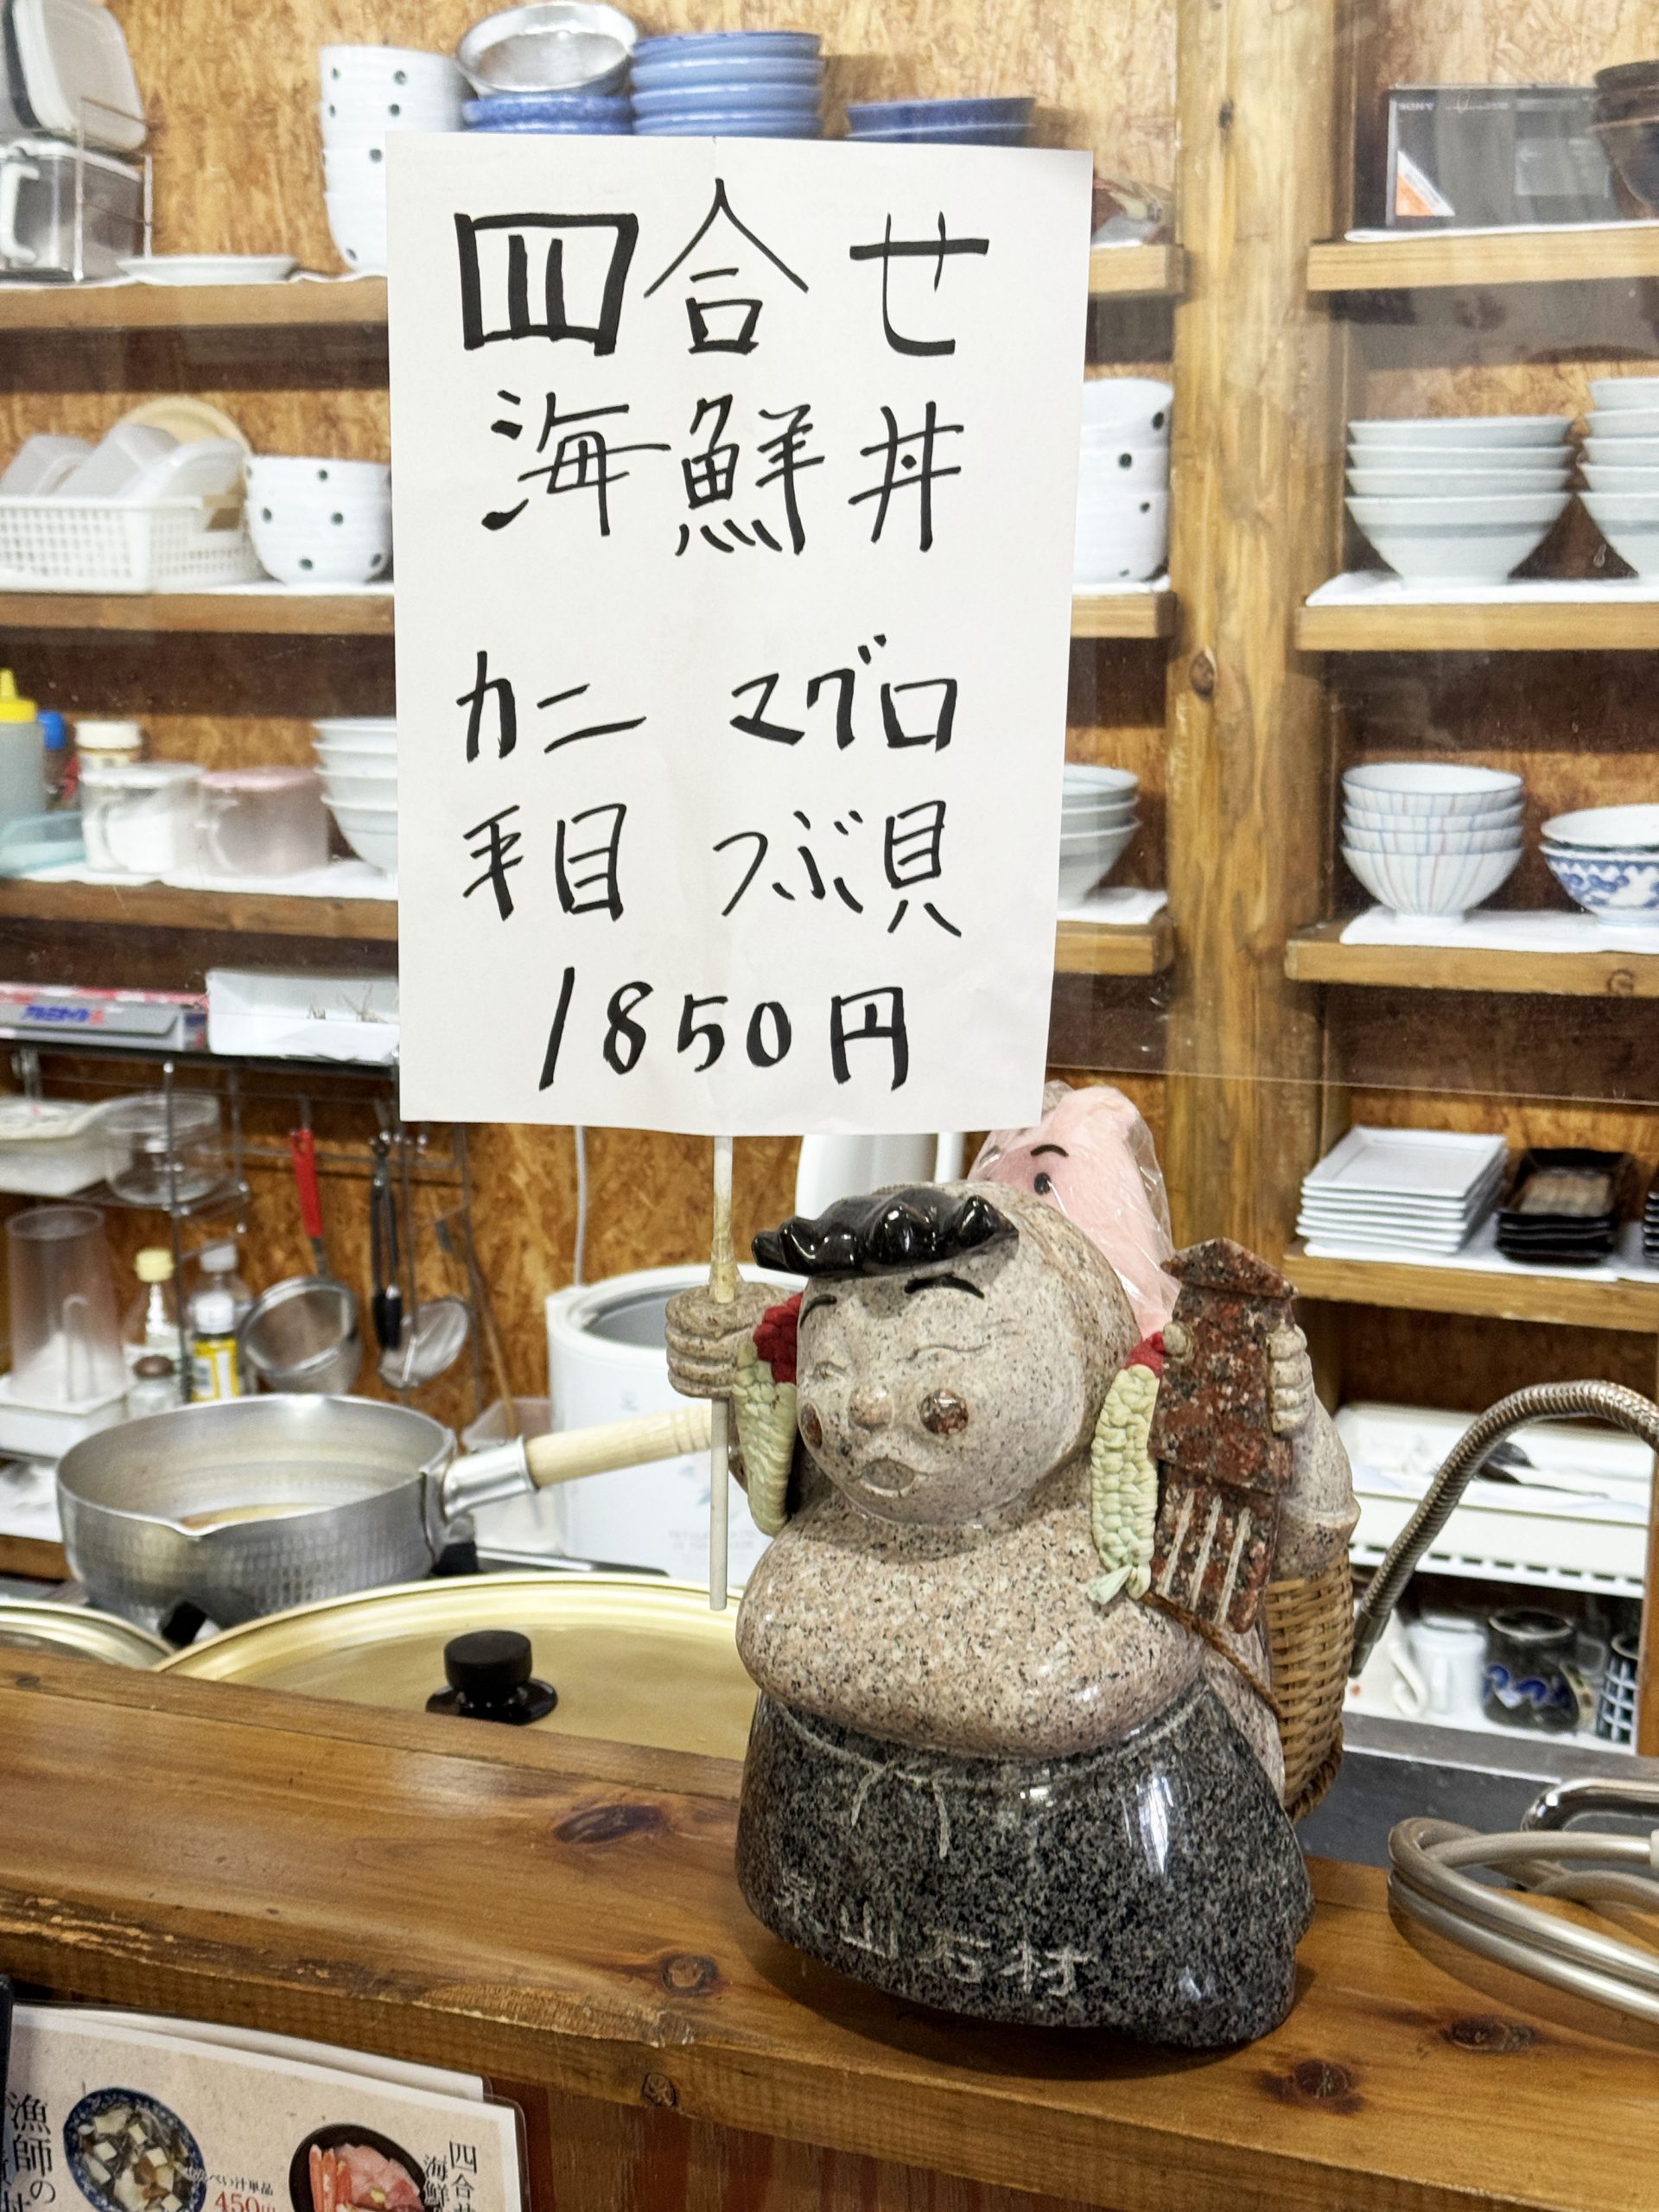 四合せ
海鮮丼
カニ マグロ
平目 つぶ貝
1850円
SONY
山石材
漁師の
四合せ
海鮮
べい汁単品
450円